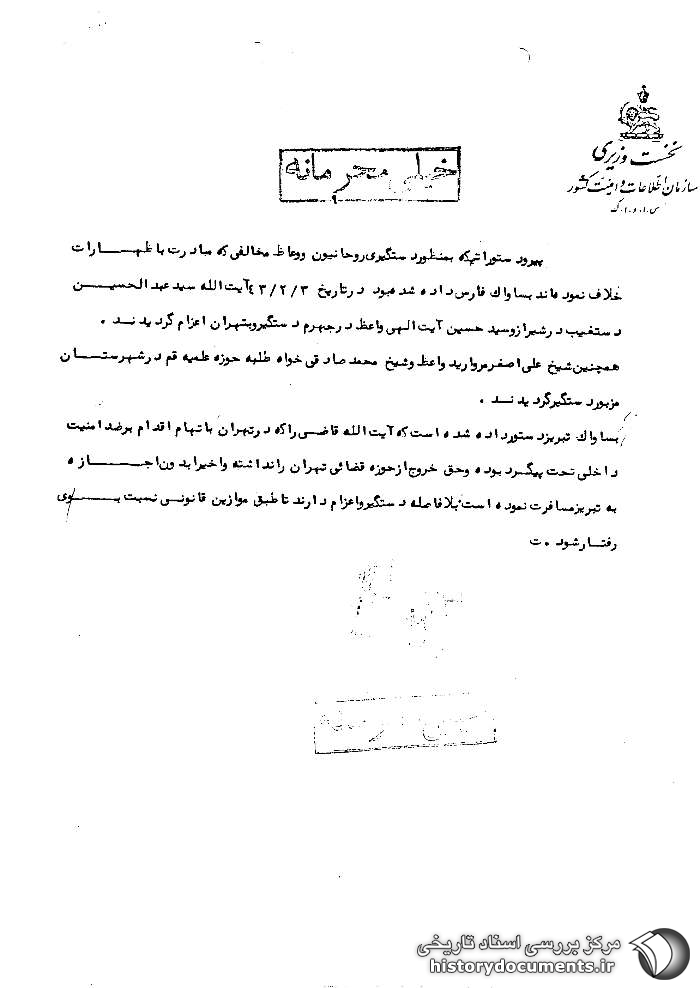 نخست وزیری
سازمان اطلاعات و امنیت کشور
س.ا.و.ا.ک
خیلی محرمانه
پیرود ستوراتیکه بمنظورد ستگیری روحانیون ووعاظ مخالفی که مبادرت باظهـــارات
خلاف نموده‌اند بساواک فارس داده شده‌بود درتاریخ ۴۳/۲/۳ آیت الله سید عبدالحسیـــن
دستغیب درشیرازوسید حسین آیت الهی واعظ درجهرم دستگیروبتهران اعزام گردیدنــد .
همچنین شیخ علی اصغرمروارید واعظ وشیخ محمد صادقی خواه طلبه حوزه علمیه قم درشهرستـــان
مزبوردستگیرگردیدنــد .
بساواک تبریزدستورداده شده است که آیت الله قاضی راکه درتهران باتهام اقدام برضدامنیت
داخلی تحت پیگـرد بوده وحق خروج ازحوزه قضائی تهران رانداشته واخیرابدون اجـــازه
به تبریزمسافرت نموده است بلافاصله دستگیرواعزام دارند تاطبق موازین قانونی نسبت بـــوی
رفتـارشود .ت
مرکز بررسی اسناد تاریخی
historydocuments.ir